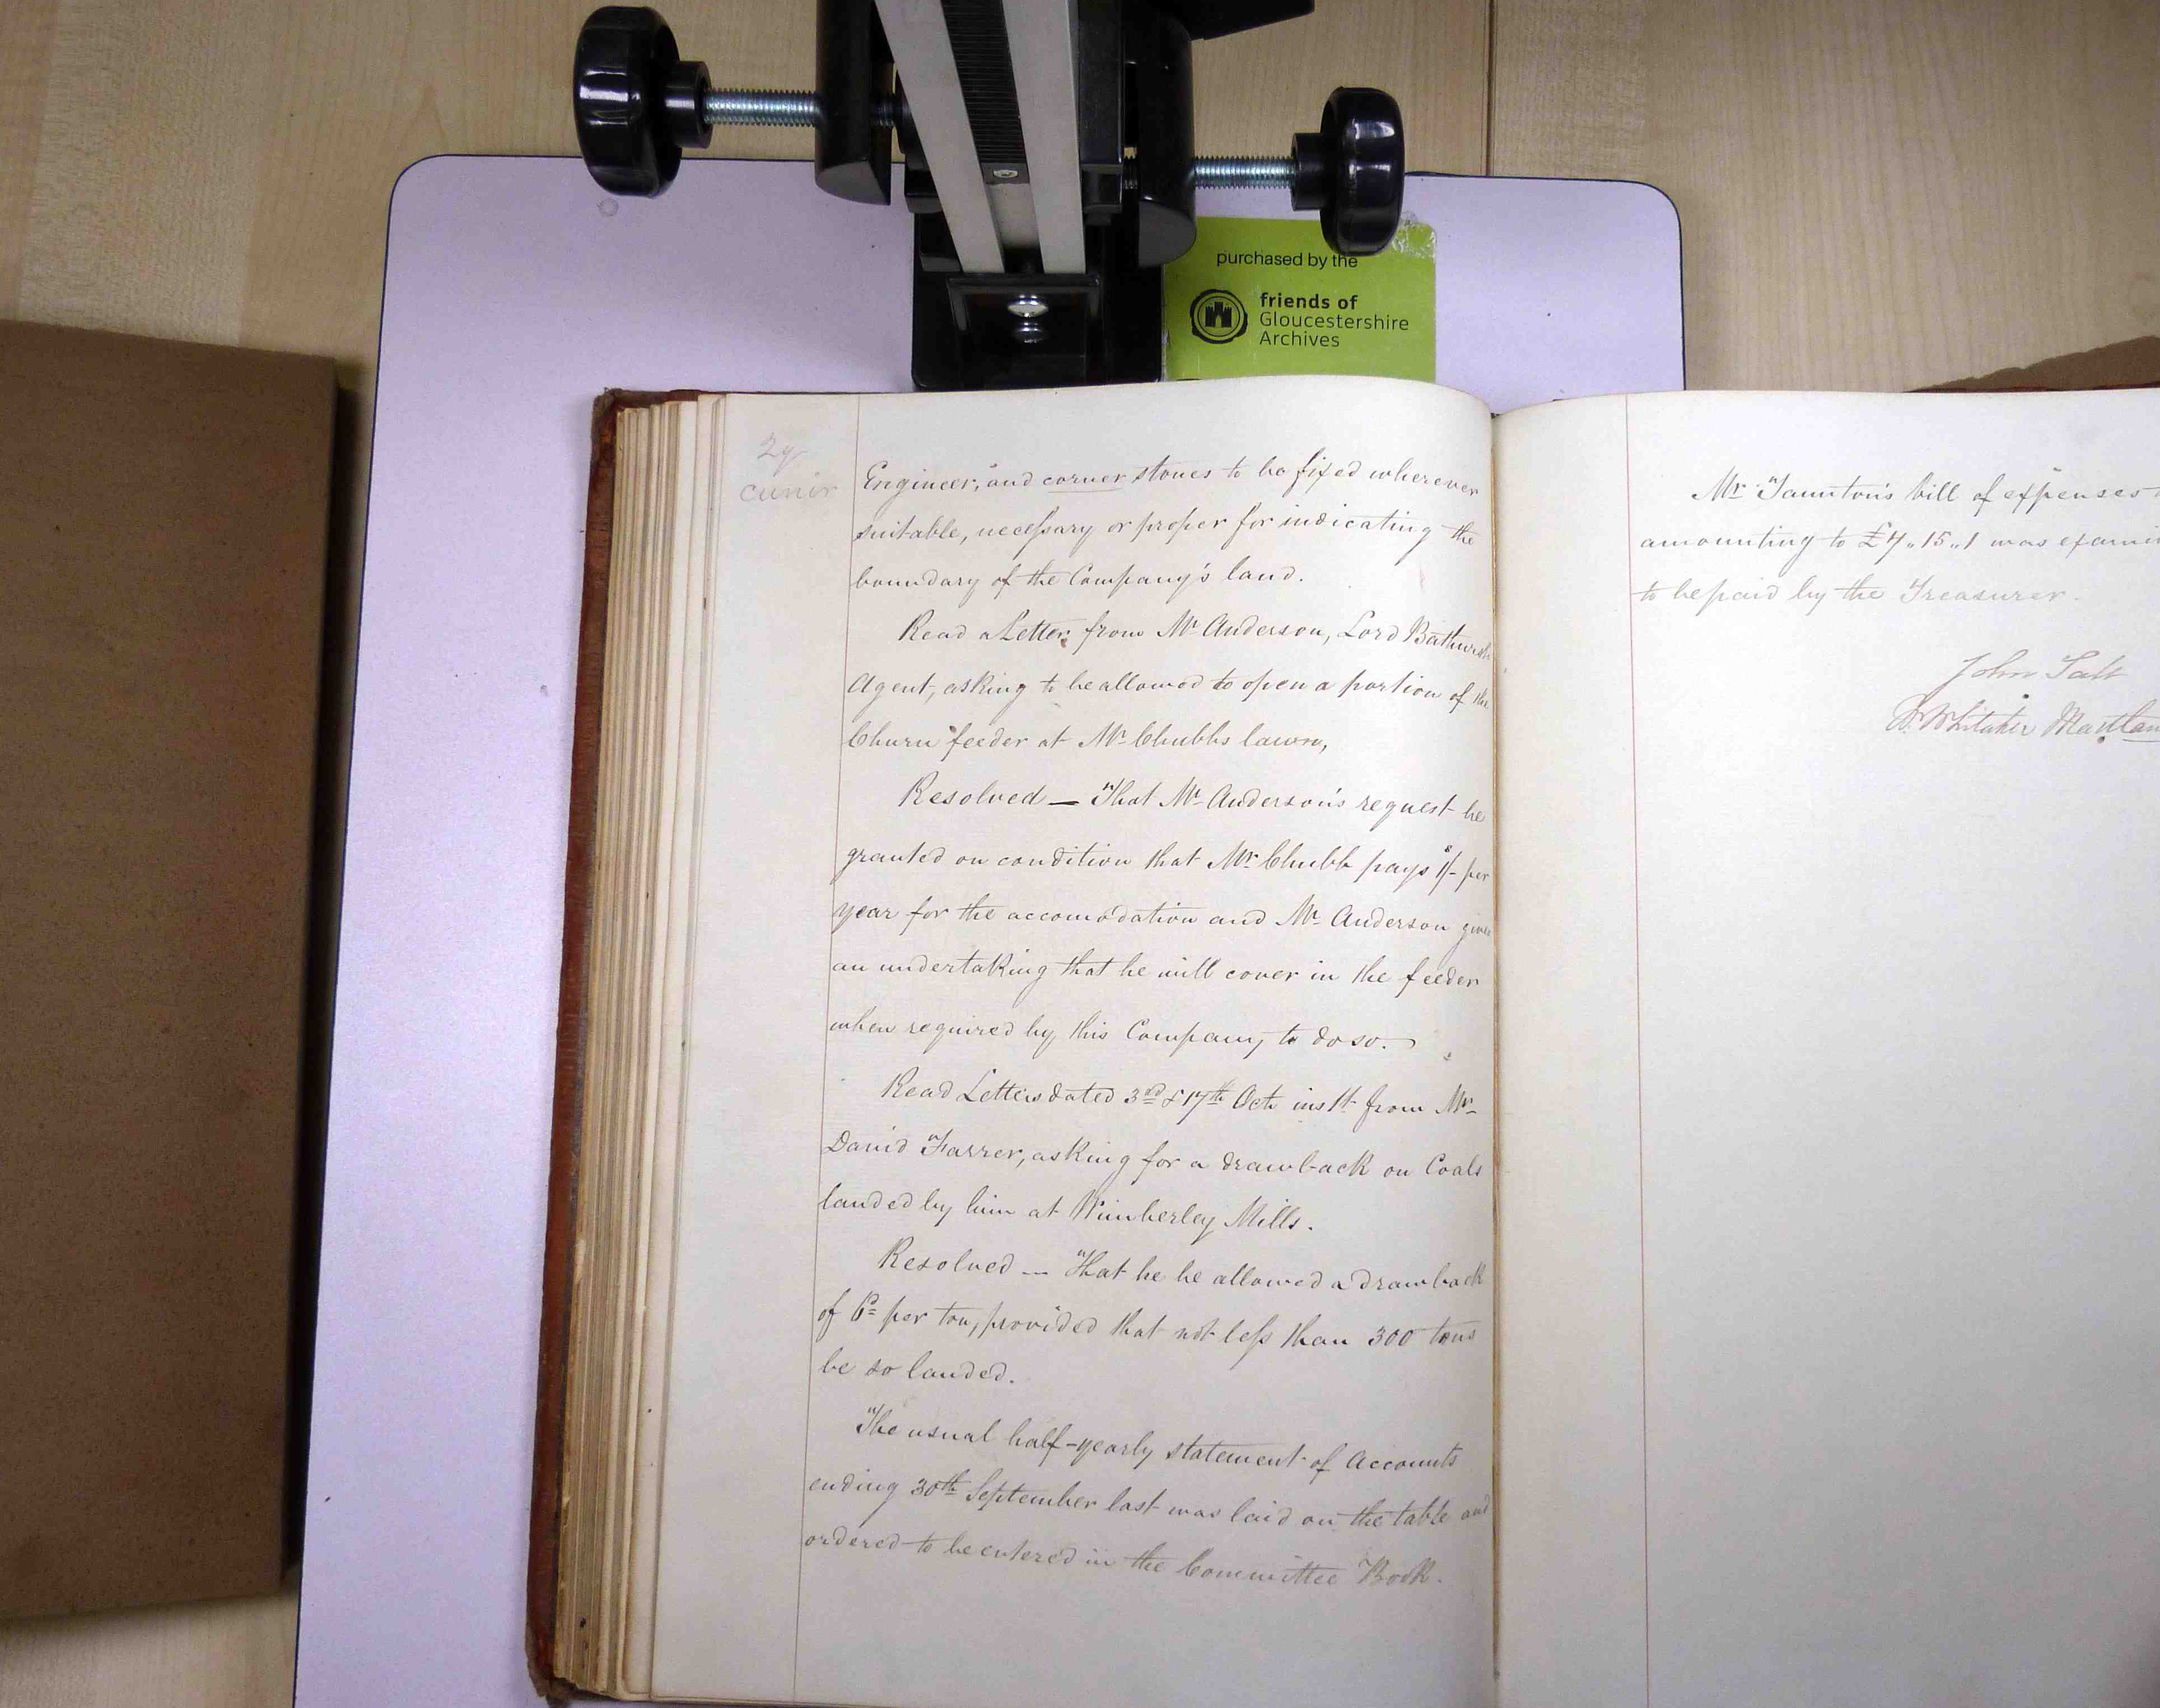 purchased by the
friends of
Gloucestershire
Archives
Engineer, and corner stones to be fixed wherever
suitable, necessary or proper for indicating the
boundary of the Company's land.
Read a Letter from Mr Anderson, Lord Bathurst
Agent, asking to be allowed to open a portion of the
Churn feeder at Mr Chubbs lawn,
Resolved — That Mr Anderson's request be
granted on condition that Mr Chubb pays 1/- per
year for the accomodation and Mr Anderson gives
an undertaking that he will cover in the feeder
when required by this Company to do so.
Read Letters dated 3rd & 17th Oct inst from Mr
David Farrer, asking for a drawback on Coals
landed by him at Kimberley Mills.
Resolved — That he be allowed a drawback
of 6d per ton, provided that not less than 300 tons
be so landed.
The usual half-yearly statement of Accounts
ending 30th September last was laid on the table and
ordered to be entered in the Committee Book.
Mr Taunton's bill of expenses
amounting to £7,, 15,, 1 was
to be paid by the Treasurer.
John Salt
Whitaker